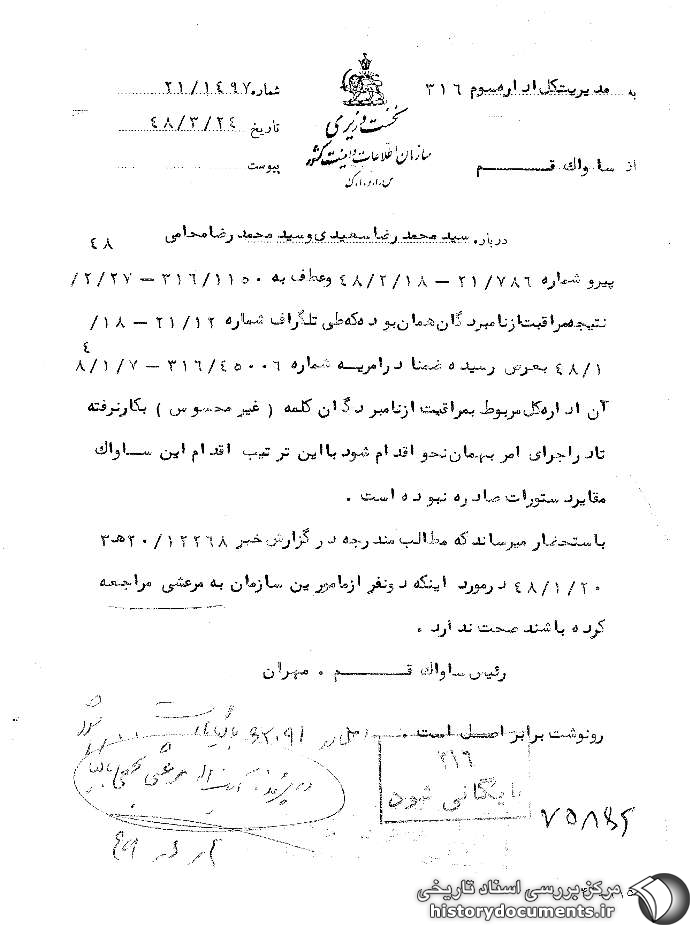 به مدیریت کل اداره سوم ۳۱۶
شماره ۲۱/۱۴۹۷
نخست وزیری
تاریخ ۴۸/۳/۲۴
سازمان اطلاعات و امنیت کشور
از ساواک قم
پیوست
س.ا.و.ا.ک
درباره سید محمد رضا سعیدی و سید محمد رضا محامی
۴۸
پیرو شماره ۲۱/۷۸۶ – ۴۸/۲/۱۸ و عطف به ۳۱۶/۱۱۵۰ – ۲/۲۷/
نتیجه مراقبت از نامبردگان همان بوده که طی تلگراف شماره ۲۱/۱۲ – ۱۸/
۴۸/۱ بعرض رسیده ضمنا در امریه شماره ۳۱۶/۴۵۰۰۶ – ۸/۱/۷
۴
آن اداره کل مربوط بمراقبت از نامبردگان کلمه ( غیر محسوس ) بکار نرفته
تا در اجرای امر بهمان نحو اقدام شود با این ترتیب اقدام این ساواک
مقایرد ستورات صادره نبوده است .
باستحضار میرساند که مطالب مندرجه در گزارش خبر ۲۰/۱۲۲۶۸ ه‍ ۳
۴۸/۱/۲۰ در مورد اینکه دونفر از مامورین این سازمان به مرعشی مراجعه
کرده باشند صحت ندارد .
رئیس ساواک قم . مهران
رونوشت برابر اصل است .
شود
۳۱۶
بایگانی شود
در پرونده آیت اله مرعشی نجفی
۷۵۸۸۴
مرکز بررسی اسناد تاریخی
historydocuments.ir